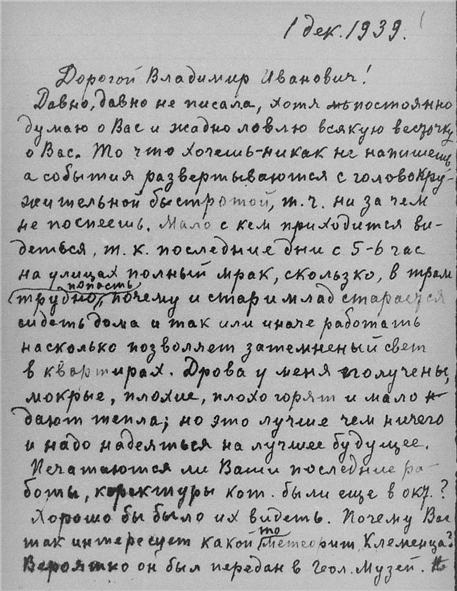 1 дек. 1939.
Дорогой Владимир Иванович!
Давно, давно не писала, хотя постоянно
думаю о Вас и жадно ловлю всякую весточку
о Вас. То что хочешь-никак не напишешь
а события развертываются с головокру-
жительной быстротой, т. ч. ни за чем
не поспеешь. Мало с кем приходится ви-
деться, т. к. последние дни с 5-6 час
на улицах полный мрак, скользко, в трам
попасть
трудно, почему и стар и млад старается
сидеть дома и так или иначе работать
насколько позволяет затемненый свет
в квартирах. Дрова у меня получены,
мокрые, плохие, плохо горят и мало
дают тепла; но это лучше чем ничего
и надо надеяться на лучшее будущее.
Печатаются ли Ваши последние ра-
боты, коректуры кот. были еще в окт.?
Хорошо бы было их видеть. Почему Вас
то
так интересует какой метеорит Клеменца?
Вероятно он был передан в геол. Музей.